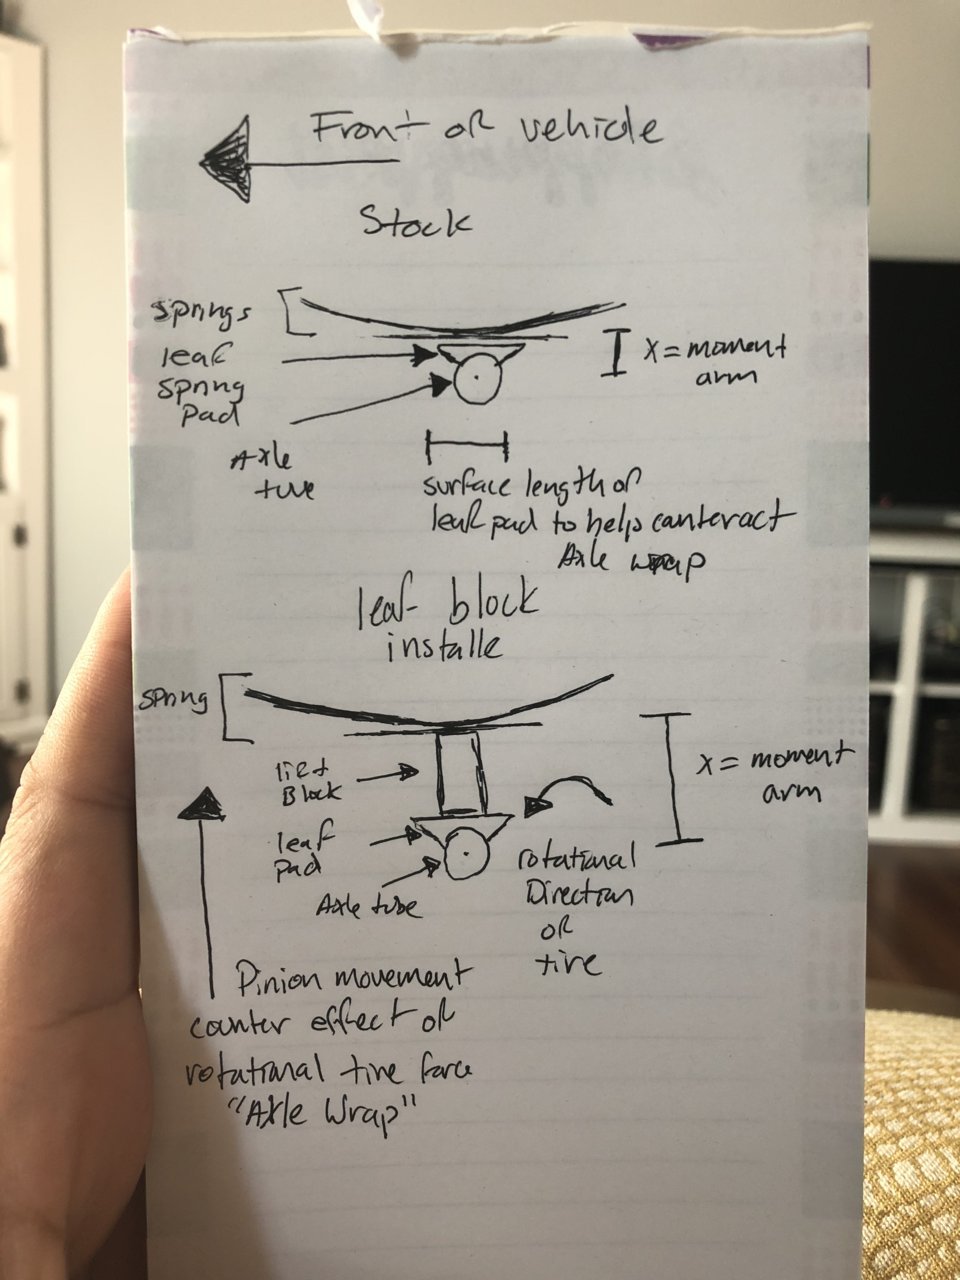 Front of vehicle
Stock
springs
leaf
spring
Pad
Axle
tuve
X = moment
arm
surface length of
leaf pad to help canteract
Axle wrap
leaf block
installe
spring
lift
Block
leaf
pad
Axle tube
X = moment
arm
rotational
Direction
of
tire
Pinion movement
counter effect of
rotational tire force
"Axle Wrap"